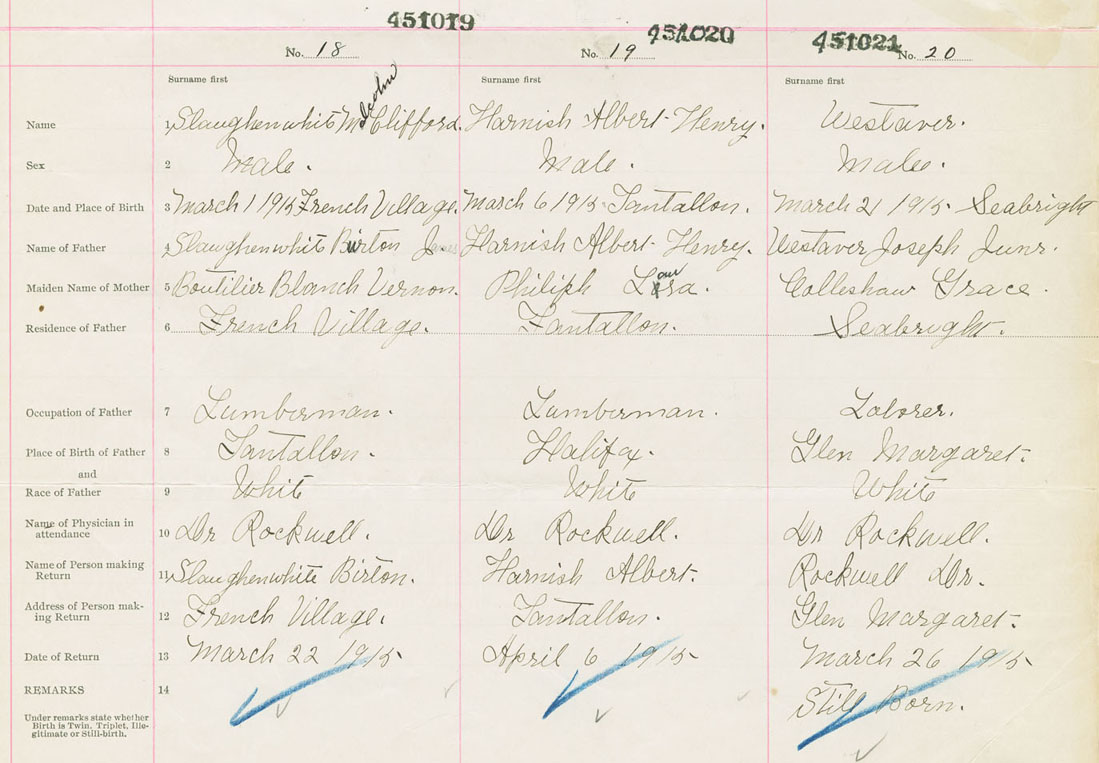 451019 451020 451021
No. 18 No. 19 No. 20
Surname first Surname first Surname first
Name 1 Slaughenwhite Malcolm Clifford. Harnish Albert Henry. Westaver.
Sex 2 Male. Male. Male.
Date and Place of Birth 3 March 1 1915 French Village. March 6 1915 Tantallon. March 21 1915 Seabright
Name of Father 4 Slaughenwhite Burton James Harnish Albert Henry. Westaver Joseph Junr.
Maiden Name of Mother 5 Boutilier Blanch Vernon. Philiph Laura. Colleshaw Grace.
Residence of Father 6 French Village. Tantallon. Seabright.
Occupation of Father 7 Lumberman. Lumberman. Laborer.
Place of Birth of Father 8 Tantallon. Halifax. Glen Margaret.
and
Race of Father 9 White White White
Name of Physician in
attendance 10 Dr Rockwell. Dr Rockwell. Dr Rockwell.
Name of Person making
Return 11 Slaughenwhite Birton. Harnish Albert. Rockwell Dr.
Address of Person mak-
ing Return 12 French Village. Tantallon. Glen Margaret.
Date of Return 13 March 22 1915 April 6 1915 March 26 1915
REMARKS 14 Still Born.
Under remarks state whether
Birth is Twin, Triplet, Ille-
gitimate or Still-birth.